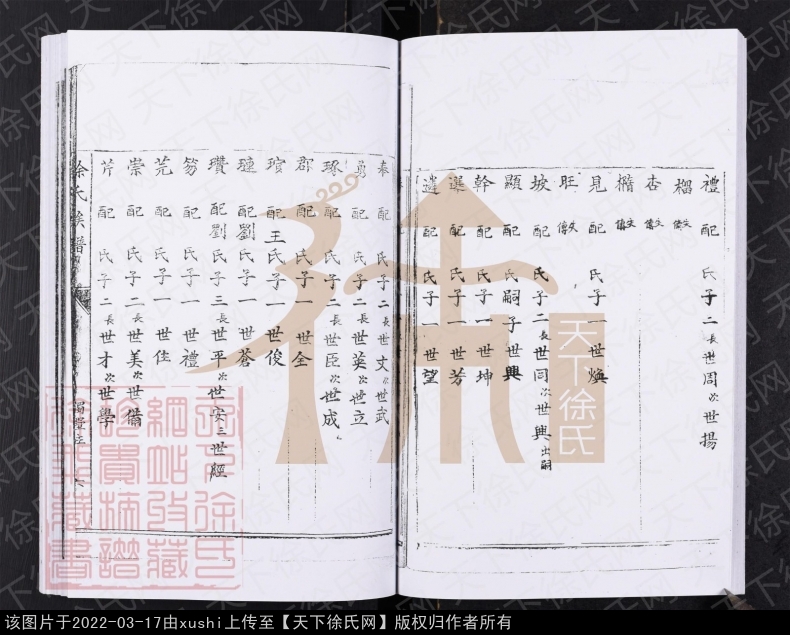 禮 配 氏子二長世周次世揚
榴 傳失
杏 傳失
楷 傳失
見 配 氏子一世煥
旺 傳失
坡 配 氏子二長世同次世興出嗣
顯 配 氏嗣子世興
幹 配 氏子一世坤
選 配 氏子一世芳
遴 配 氏子一世望
奉 配 氏子二長世文次世武
勇 配 氏子二長世英次世立
琢 配 氏子二長世臣次世成
郡 配 氏子一 世全
瑸 配王氏子一 世俊
璉 配劉氏子一 世蒼
瓚 配劉氏子三長世平次世安三世經
笏 配 氏子一 世禮
芫 配 氏子一 世佳
崇 配 氏子二長世美次世儒
芹 配 氏子二長世才次世學
徐氏族譜
天下徐氏
天下徐氏网
该图片于2022-03-17由xushi上传至【天下徐氏网】版权归作者所有